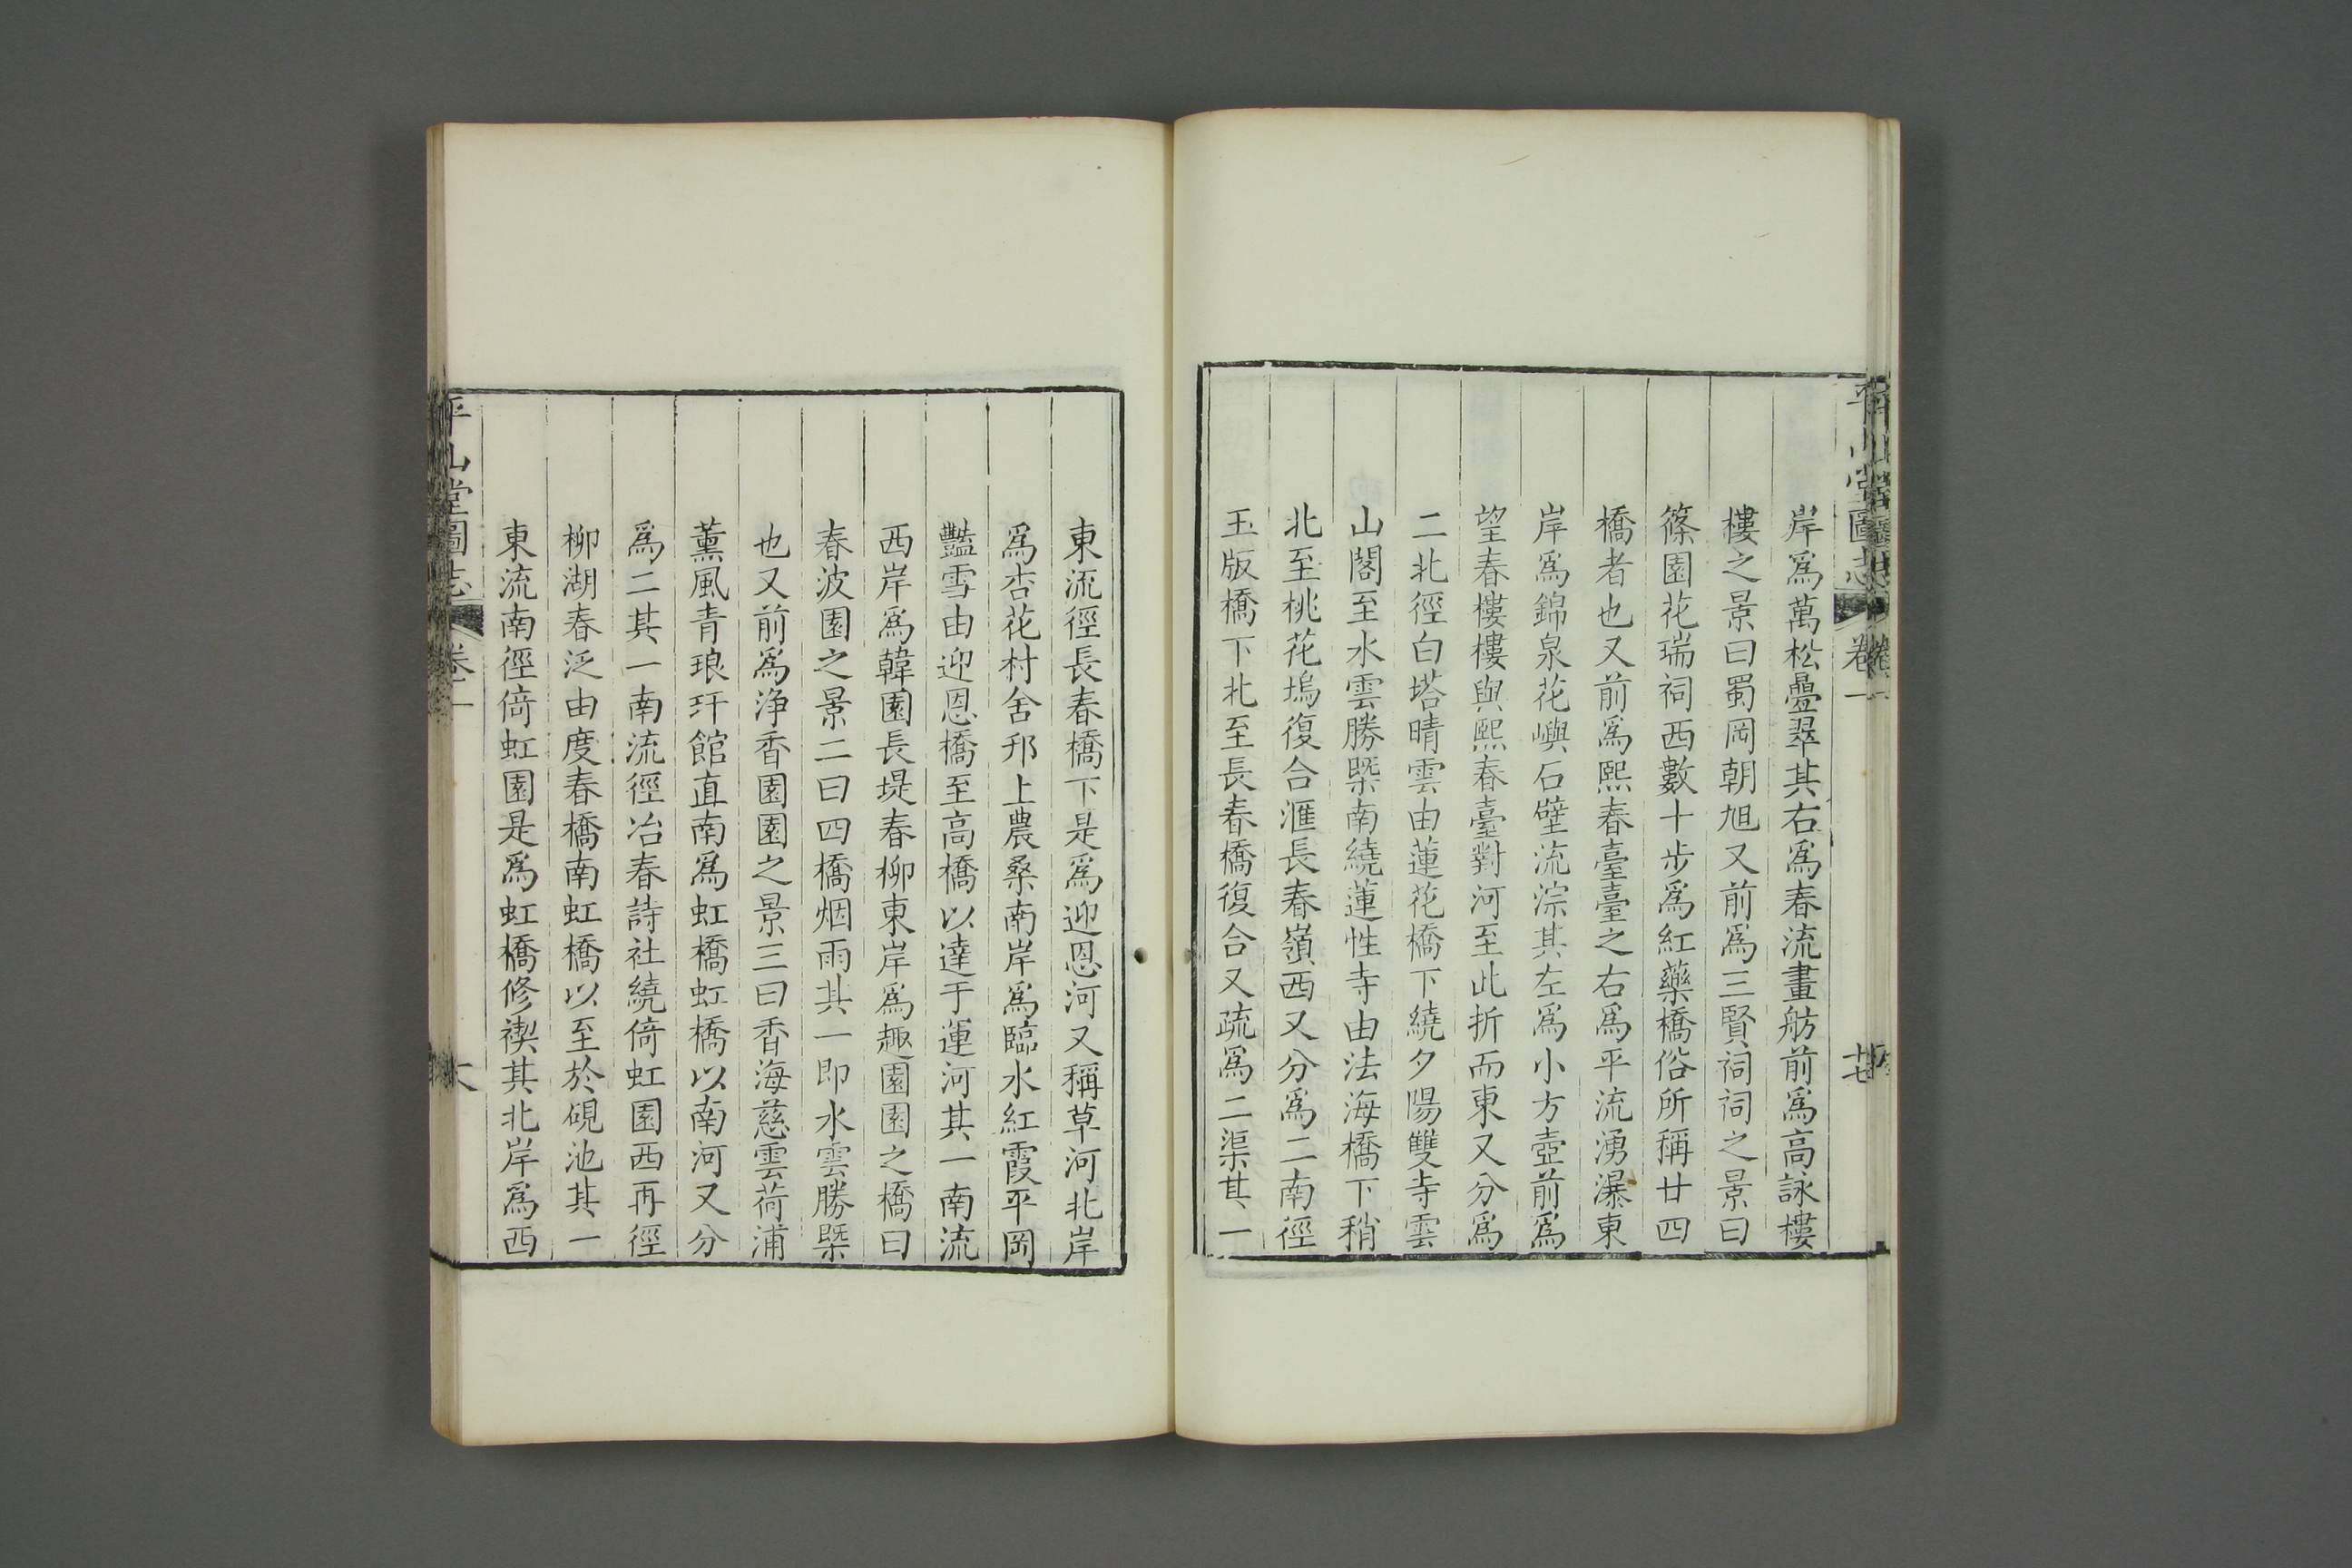 平山堂圖志
卷一
岸爲萬松疊翠其右爲春流畫舫前爲高詠樓
樓之景曰蜀岡朝旭又前爲三賢祠祠之景曰
篠園花瑞祠西數十步爲紅藥橋俗所稱廿四
橋者也又前爲熙春臺臺之右爲平流湧瀑東
岸爲錦泉花嶼石壁流淙其左爲小方壺前爲
望春樓樓與熙春臺對河至此折而東又分爲
二北徑白塔晴雲由蓮花橋下繞夕陽雙寺雲
山閣至水雲勝槩南繞蓮性寺由法海橋下稍
北至桃花塢復合滙長春嶺西又分爲二南徑
玉版橋下北至長春橋復合又疏爲二渠其一
東流徑長春橋下是爲迎恩河又稱草河北岸
爲杏花村舍邗上農桑南岸爲臨水紅霞平岡
豔雪由迎恩橋至高橋以達于運河其一南流
西岸爲韓園長堤春柳東岸爲趣園園之橋曰
春波園之景二曰四橋烟雨其一即水雲勝槩
也又前爲浄香園園之景三曰香海慈雲荷浦
薰風青琅玕館直南爲虹橋虹橋以南河又分
爲二其一南流徑冶春詩社繞倚虹園西再徑
柳湖春泛由度春橋南虹橋以至於硯池其一
東流南徑倚虹園是爲虹橋修禊其北岸爲西
平山堂圖志
卷一